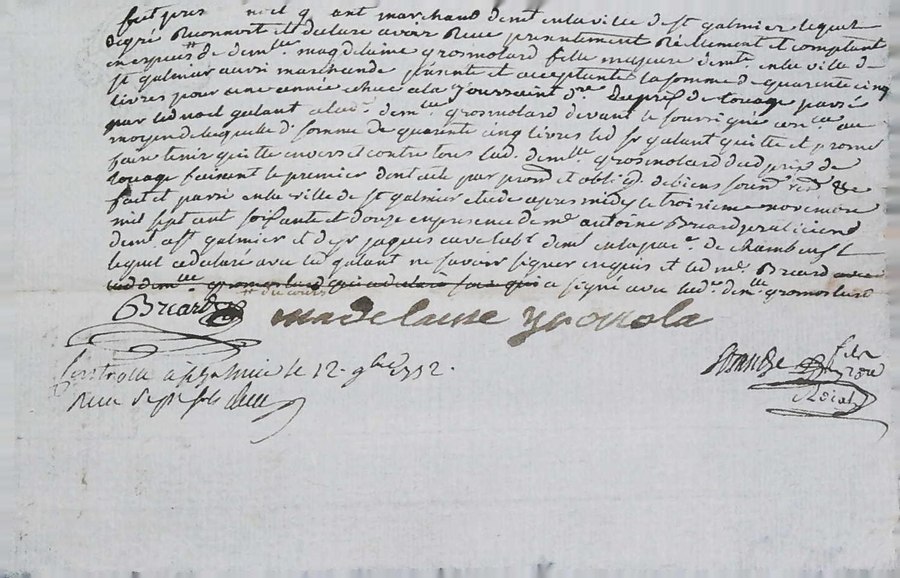 fut pres noel g ant marchand demt en la ville de st galmier lequel
degré Reconnoit et declare avoir Reçu presentement Réellement et comptant
en especes de demlle magdelaine grosmolard fille majeure demte en la ville de
st galmier aussi marchande presente et acceptante la somme de quarente cinq
livres pour une année echue a la Toussaint du prix de louage passé
par led noel galant a lad. demlle grosmolard devant le soussigné
moyen de laquelle d. somme de quarente cinq livres led sr galant quitte et promet
faire tenir quitte envers et contre tous lad. demlle grosmolard dud prix de
louage faisant le premier dont acte par prom et oblig de biens soum
fait et passé en la ville de st galmier etude apres midy le troisieme novembre
mil sept cent soixante et douze en presence de me antoine Breard praticien
demt a st galmier et de sr jaques cave labr demt en la par de chambeuf
lequel a declaré avec led galant ne savoir signer enquis et led me Breard avec
lad demlle grosmolard qui a declaré a signé avec lad. demlle grosmolard
Breard
madelaine
Controllé a st galmier le 12 9bre 1772.
Reçu sept sols